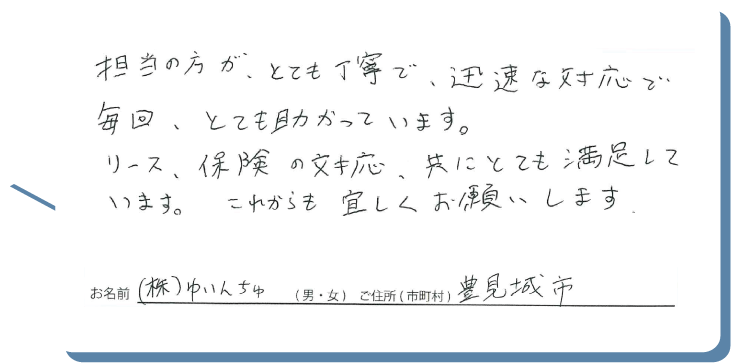 担当の方が、とても丁寧で、迅速な対応で
毎回、とても助かっています。
リース、保険の対応、共にとても満足して
います。 これからも宜しくお願いします.
お名前 (株)ゆいんちゅ (男・女) ご住所(市町村) 豊見城市